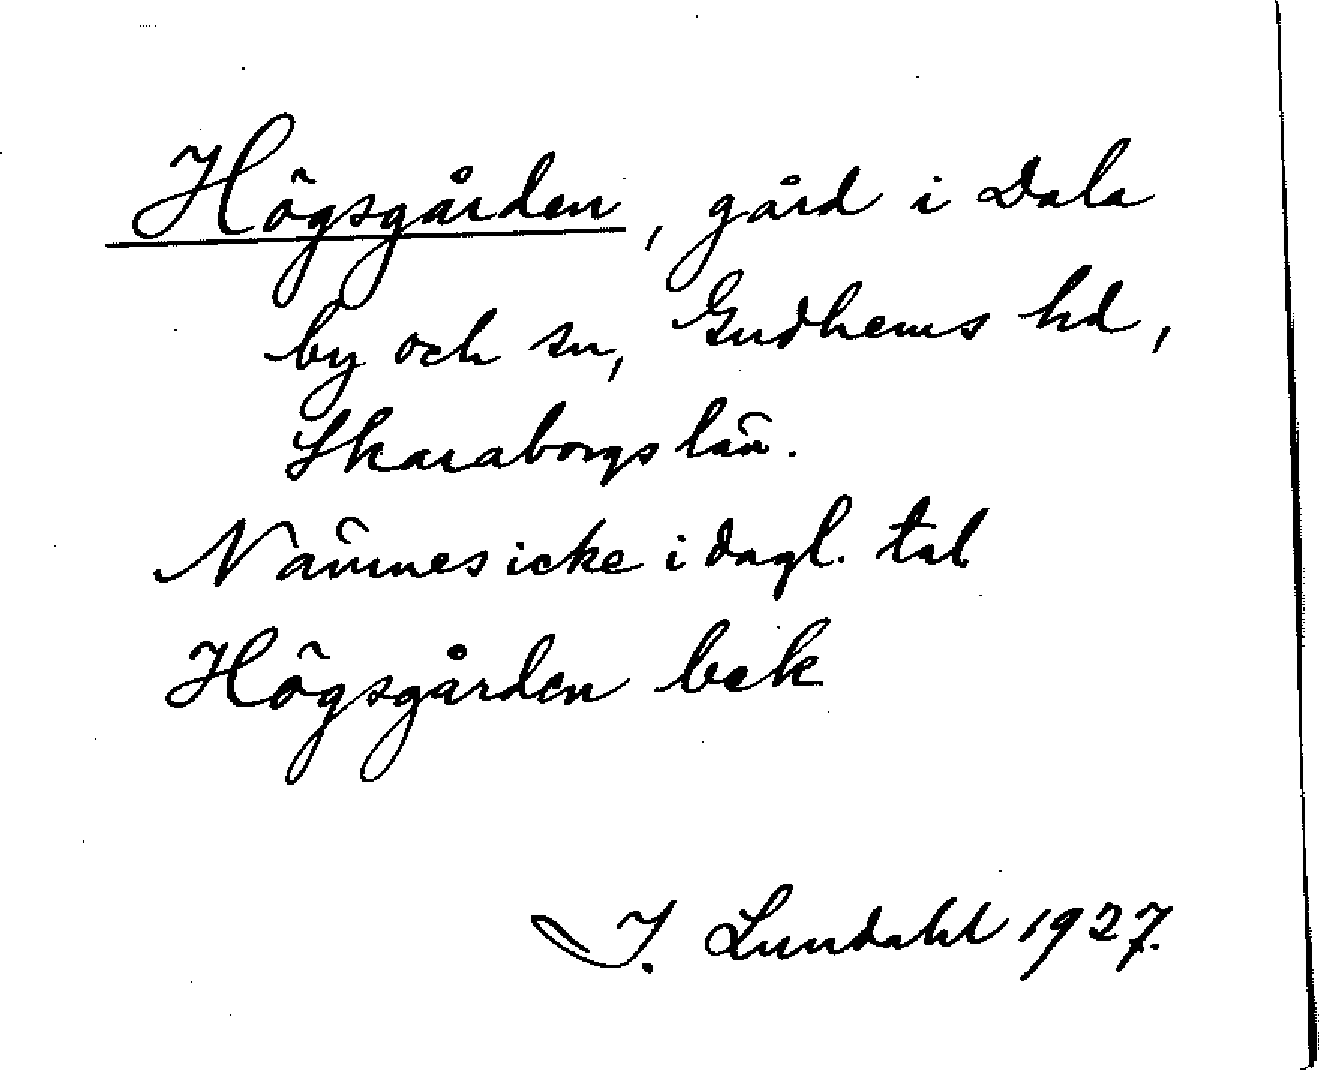 Högsgården, gård i Dala
by och sn, Gudhems hd,
Skaraborgs län.
Nämnes icke i dagl. tal
Högsgården bek
I. Lundahl 1927.